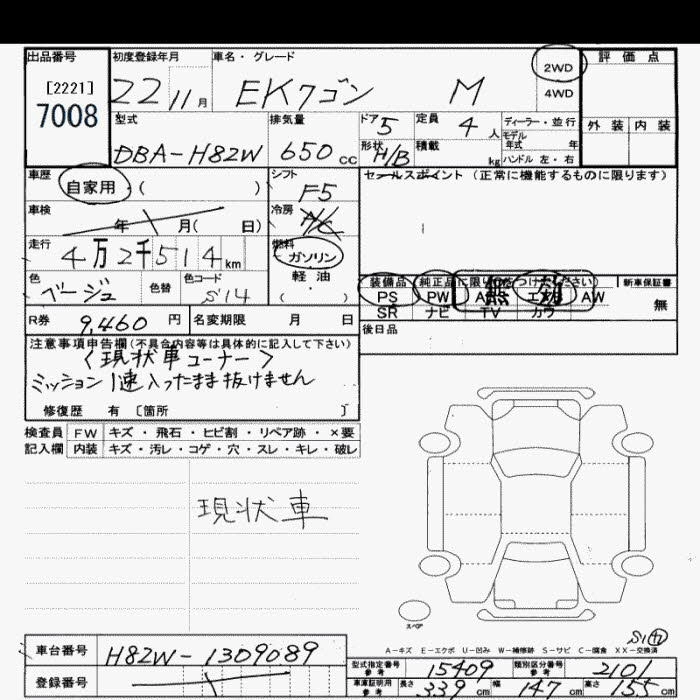 出品番号 初度登録年月 車名・グレード 2WD 評価点
[2221] 22 11月 EKワゴン M 4WD
7008
型式 排気量 ドア 5 定員 4人 ディーラー・並行 外装 内装
モデル年式 年
DBA-H82W 650cc 形状 H/B 積載 kg ハンドル 左・右
車歴 自家用 ( ) シフト F5 セールスポイント (正常に機能するものに限ります)
車検 年 月( 日) 冷房 A/C
走行 4万2千514km 燃料 ガソリン
軽・油
( )
色 ベージュ 色替 色コード S14
装備品 純正品に限り○をつけてください) 新車保証書
PS PW エアB AW 無
SR ナビ TV カワ
R券 9,460円 名変期限 月 日 後日品
注意事項申告欄(不具合内容等は具体的に記入して下さい)
<現状車コーナー>
ミッション1速入ったまま抜けません
修復歴 有 [箇所 ]
検査員 FW キズ・飛石・ヒビ割・リペア跡・×要
記入欄 内装 キズ・汚レ・コゲ・穴・スレ・キレ・破レ
現状車
スペア
S1
A-キズ E-エクボ U-凹み W-補修跡 S-サビ C-腐食 XX-交換済
車台番号 H82W-1309089
型式指定番号 参考 15409 類別区分番号 参考 2101
登録番号
車庫証明用 参考 長さ 339cm 幅 147cm 高さ 155cm